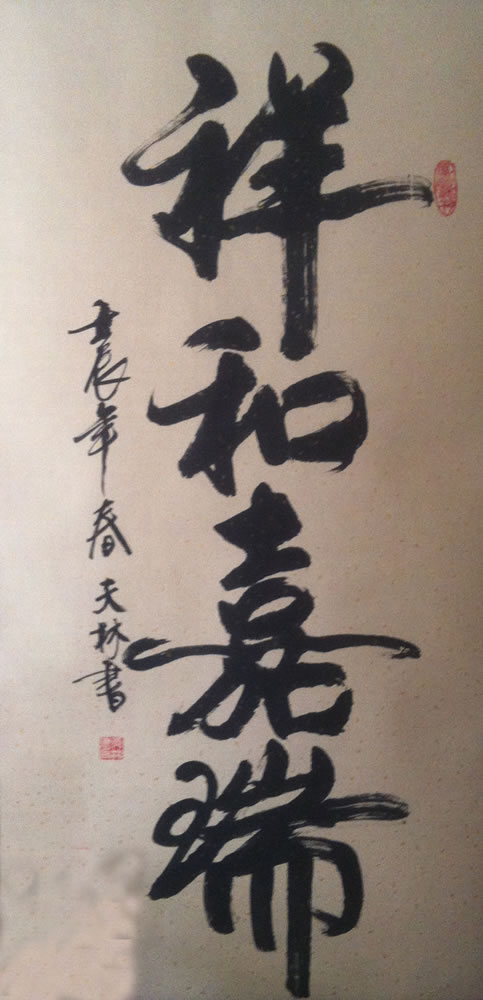 祥和嘉瑞
壬辰年春天林書